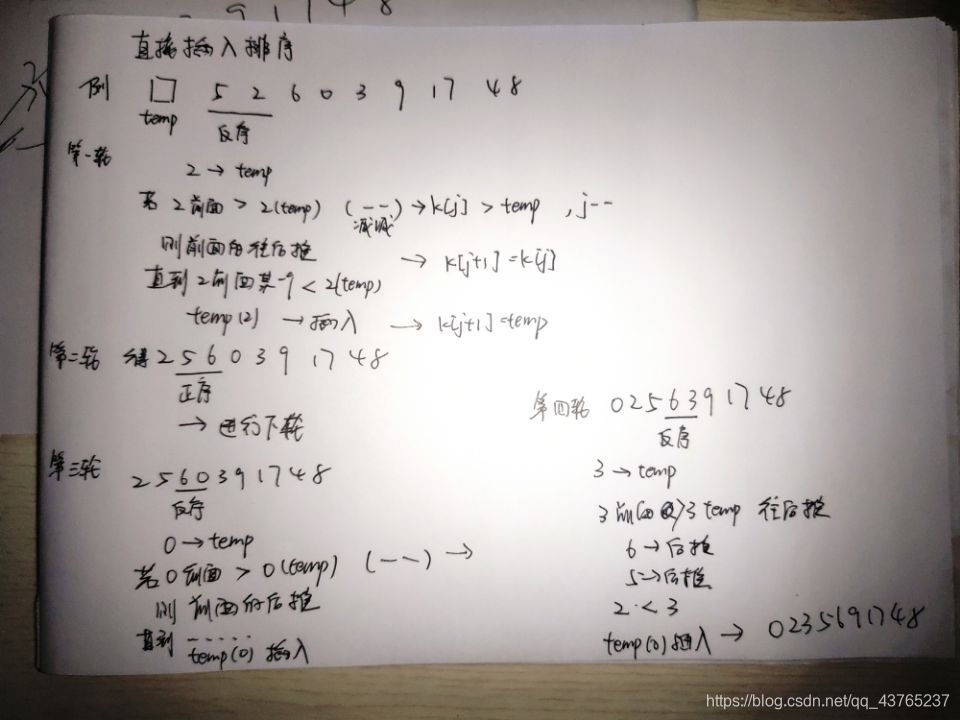 9 1 7 4 8
直接插入排序
例 口 5 2 6 0 3 9 1 7 4 8
temp 反序
第一轮
2 → temp
若 2 前面 > 2(temp) (--) → k[j] > temp , j--
减减
则前面的往后推 → k[j+1] = k[j]
直到 2 前面某一个 < 2(temp)
temp(2) → 插入 → k[j+1] = temp
第二轮 得 2 5 6 0 3 9 1 7 4 8
正序
→ 进行下轮
第三轮 2 5 6 0 3 9 1 7 4 8
反序
0 → temp
若 0 前面 > 0(temp) (--) →
则 前面的后推
直到 ......
temp(0) 插入
第四轮 0 2 5 6 3 9 1 7 4 8
反序
3 → temp
3 前面 > 3 temp 往后推
6 → 后推
5 → 后推
2 < 3
temp(0) 插入 → 0 2 3 5 6 9 1 7 4 8
https://blog.csdn.net/qq_43765237